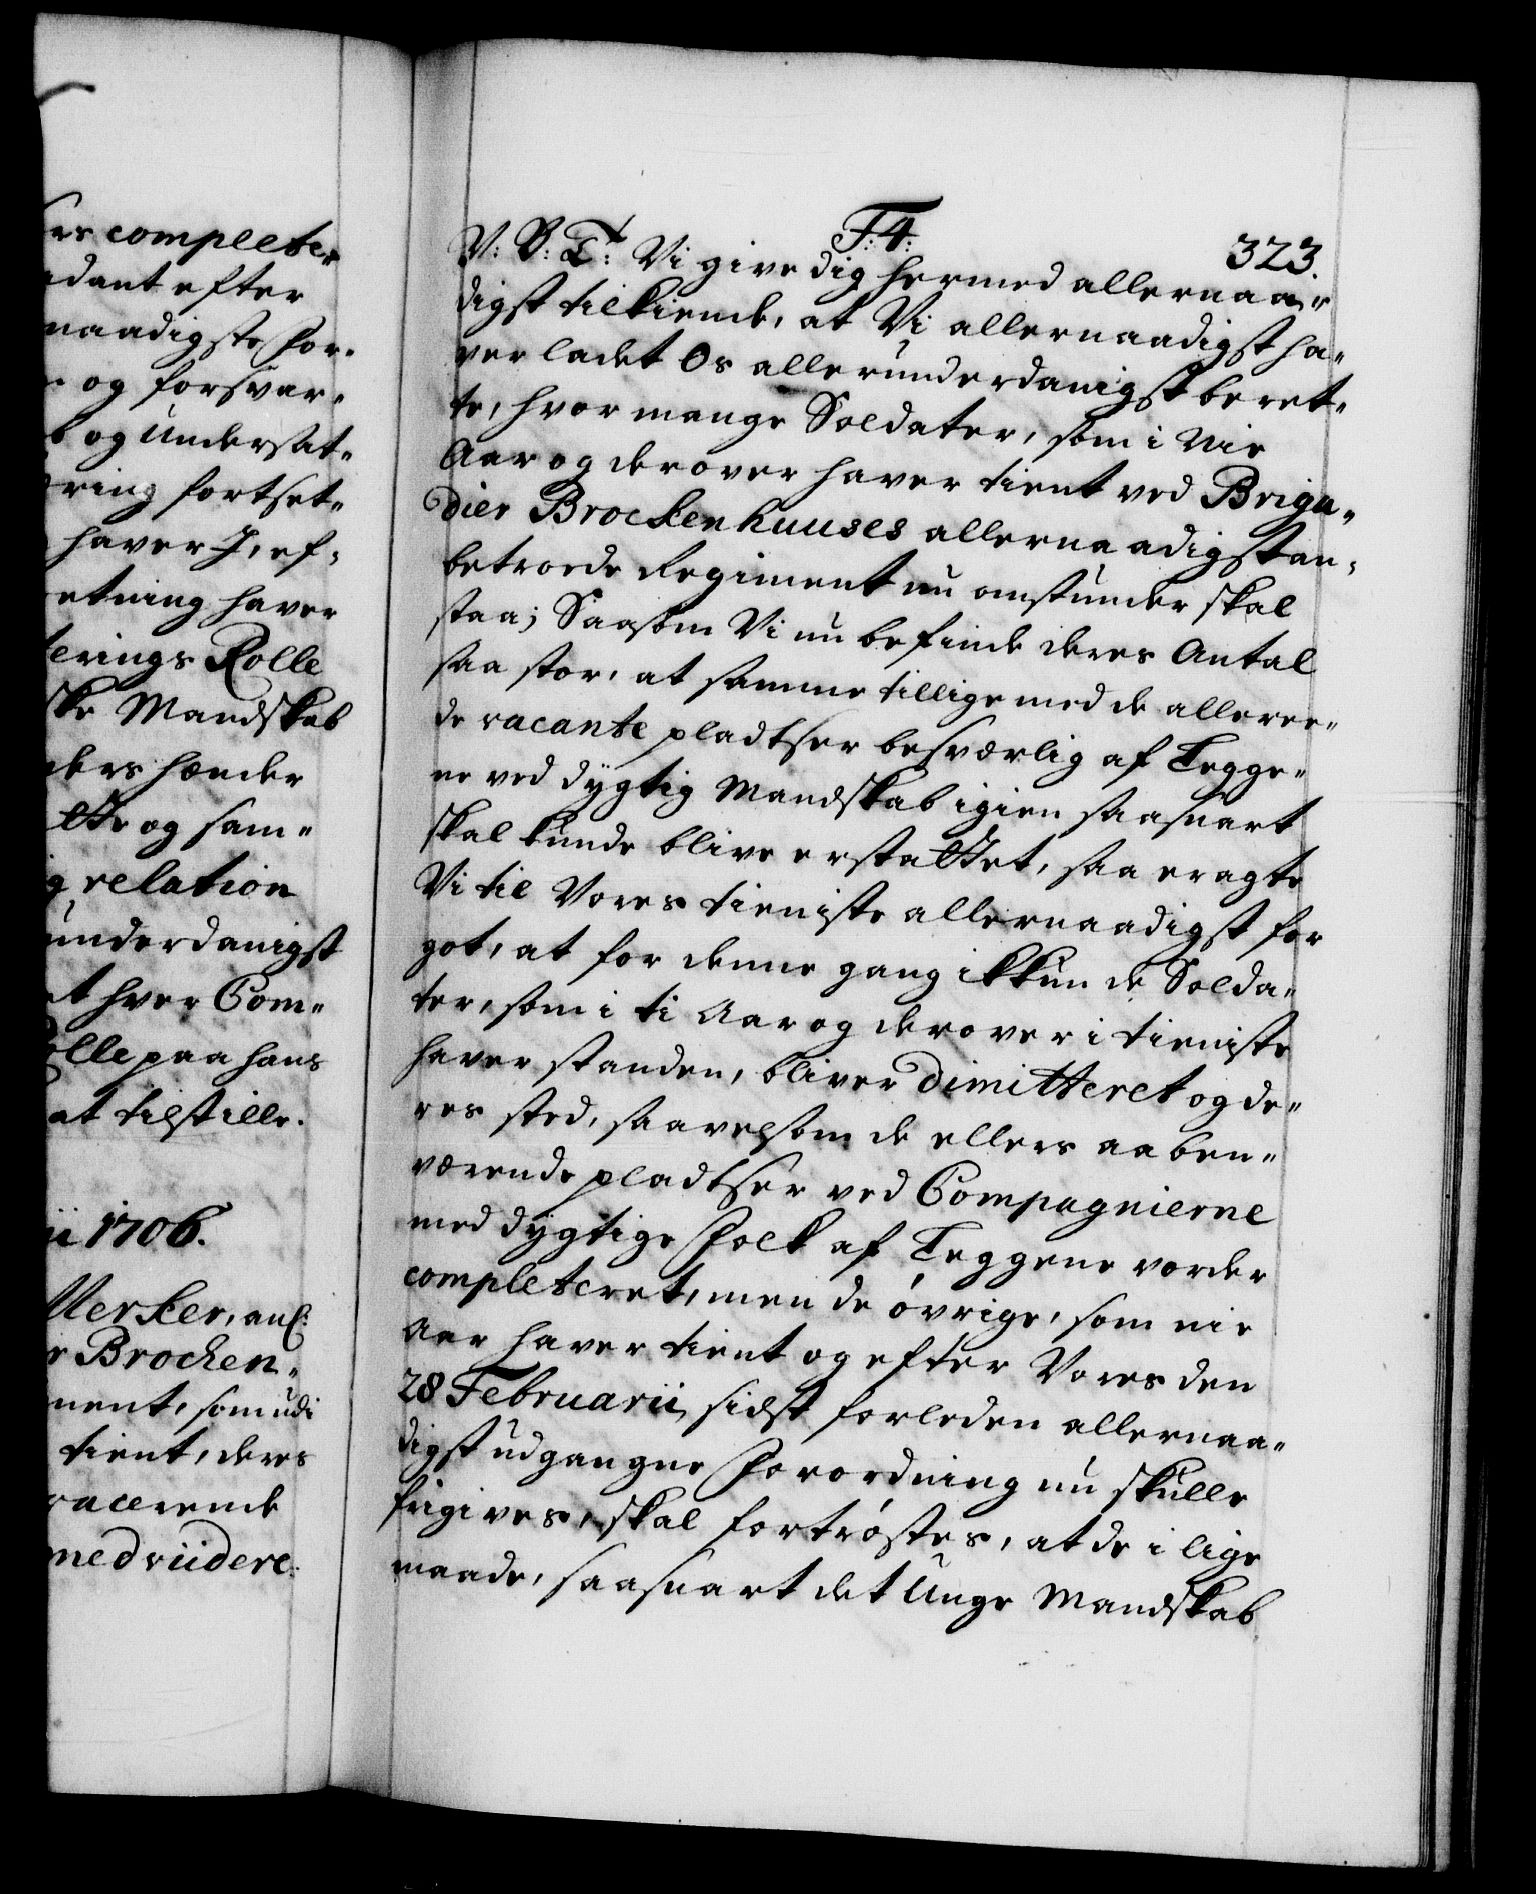 ers complete„
dant efter
naadigste For„
og forsvar„
og Undersat„
ring fortset„
haver I, ef„
retning haver
terings Rolle
ske Mandskab
ders hænder
ette og sam„
g relation
underdanigst
at hver Com„
olle paa hans
at tilstille.
ii 1706.
Merker, anl:
r Brocken„
ment, som udi
tient, deres
vacerende
med viidere:
F: 4:
323.
V: B: T: Vi give dig hermed allernaa„
digst tilkiende, at Vi allernaadigst ha„
ver ladet Os allerunderdanigst beret„
te, hvor mange Soldater, som i Nie
Aar og derover haver tient ved Briga„
dier Brockenhuuses allernaadigst an„
betroede Regiment nu omstunder skal
staa; Saasom Vi nu befinde deres Antal
saa stor, at samme tillige med de alleree„
de vacante pladtser besværlig af Legge„
ne ved dygtig Mandskab igien saasnart
skal kunde blive erstattet, saa eragte
Vi til Vores tieniste allernaadigst for
got, at for denne gang ikkun de Solda„
ter, som i ti Aar og derover i tieniste
haver standen, bliver dimitteret og de„
res sted, saavelsom de ellers aaben„
værende pladtser ved Compagnierne
med dygtige Folk af Leggene vorder
completeret, men de øvrige, som nie
Aar haver tient og efter Vores den
28 Februarii sidst forleden allernaa„
digst udgangne Forordning nu skulle
frigives, skal fortrøstes, at de i lige
maade, saasnart det Unge Mandskab